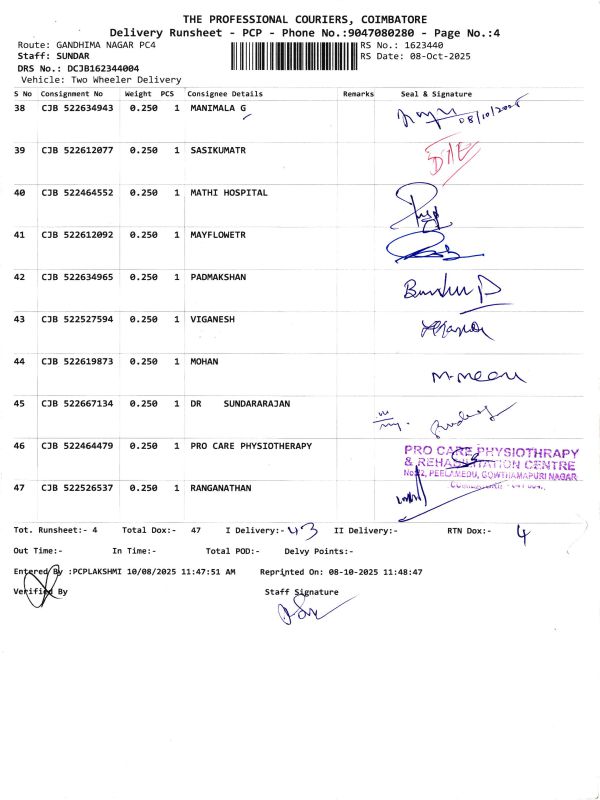 THE PROFESSIONAL COURIERS, COIMBATORE
Delivery Runsheet - PCP - Phone No.:9047080280 - Page No.:4
Route: GANDHIMA NAGAR PC4 RS No.: 1623440
Staff: SUNDAR RS Date: 08-Oct-2025
DRS No.: DCJB162344004
Vehicle: Two Wheeler Delivery
S No Consignment No Weight PCS Consignee Details Remarks Seal & Signature
38 CJB 522634943 0.250 1 MANIMALA G 08/10/2025
39 CJB 522612077 0.250 1 SASIKUMATR
40 CJB 522464552 0.250 1 MATHI HOSPITAL
41 CJB 522612092 0.250 1 MAYFLOWETR
42 CJB 522634965 0.250 1 PADMAKSHAN
43 CJB 522527594 0.250 1 VIGANESH
44 CJB 522619873 0.250 1 MOHAN
45 CJB 522667134 0.250 1 DR SUNDARARAJAN
46 CJB 522464479 0.250 1 PRO CARE PHYSIOTHERAPY
PRO CARE PHYSIOTHRAPY
& REHABILITATION CENTRE
PEELAMEDU, GOWTHAMAPURI NAGAR
47 CJB 522526537 0.250 1 RANGANATHAN
Tot. Runsheet:- 4 Total Dox:- 47 I Delivery:- 43 II Delivery:- RTN Dox:- 4
Out Time:- In Time:- Total POD:- Delvy Points:-
Entered By :PCPLAKSHMI 10/08/2025 11:47:51 AM Reprinted On: 08-10-2025 11:48:47
Verified By Staff Signature